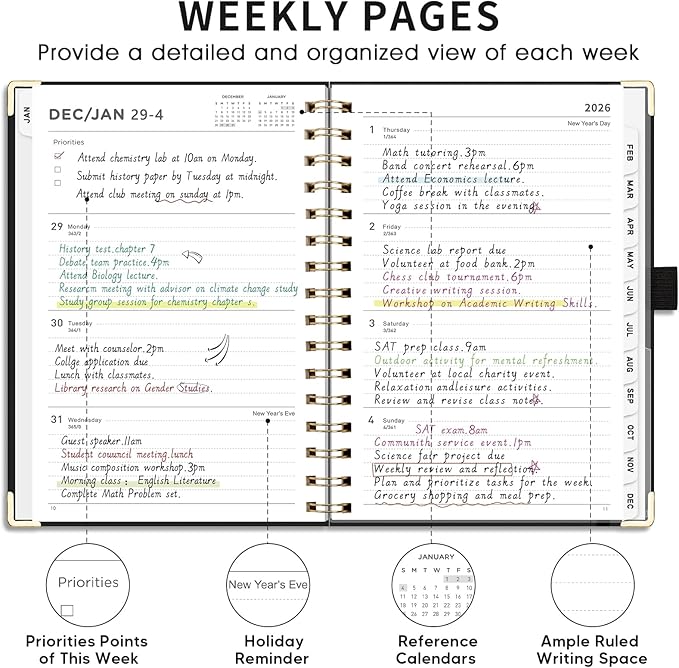 WEEKLY PAGES
Provide a detailed and organized view of each week
JAN
DEC/JAN 29-4
DECEMBER
JANUARY
Priorities
Attend chemistry lab at 10am on Monday.
Submit history paper by Tuesday at midnight.
Attend club meeting on sunday at 1pm.
29 Monday
363/2
History test.chapter 7
Debate team practice.4pm
Attend Biology lecture.
Research meeting with advisor on climate change study
Study group session for chemistry chapter s.
30 Tuesday
364/1
Meet with counselor.2pm
Collge application due
Lunch with classmates.
Library research on Gender Studies.
31 Wednesday
365/0
New Year's Eve
Guest speaker.11am
Student couuncil meeting.lunch
Music composition workshop.3pm
Morning class ; English Literature
Complete Math Problem set.
10
2026
New Year's Day
1 Thursday
1/364
Math tutoring.3pm
Band concert rehearsal.6pm
Attend Economics lecture.
Coffee break with classmates.
Yoga session in the evening.
2 Friday
2/363
Science lab report due
Volunteer at food bank.2pm
Chess club tournament.6pm
Creative writing session.
Workshop on Academic Writing Skills.
3 Saturday
3/362
SAT prep class.9am
Outdoor activity for mental refreshment.
Volunteer at local charity event.
Relaxation andleisure activities.
Review and revise class notes.
4 Sunday
4/361
SAT exam.8am
Communith service event.1pm
Science fair project due
Weekly review and reflection.
Plan and prioritize tasks for the week.
Grocery shopping and meal prep.
11
FEB
MAR
APR
MAY
JUN
JUL
AUG
SEP
OCT
NOV
DEC
Priorities
New Year's Eve
JANUARY
S M T W T F S
1 2 3
4 5 6 7 8 9 10
11 12 13 14 15 16 17
18 19 20 21 22 23 24
25 26 27 28 29 30 31
Priorities Points
of This Week
Holiday
Reminder
Reference
Calendars
Ample Ruled
Writing Space